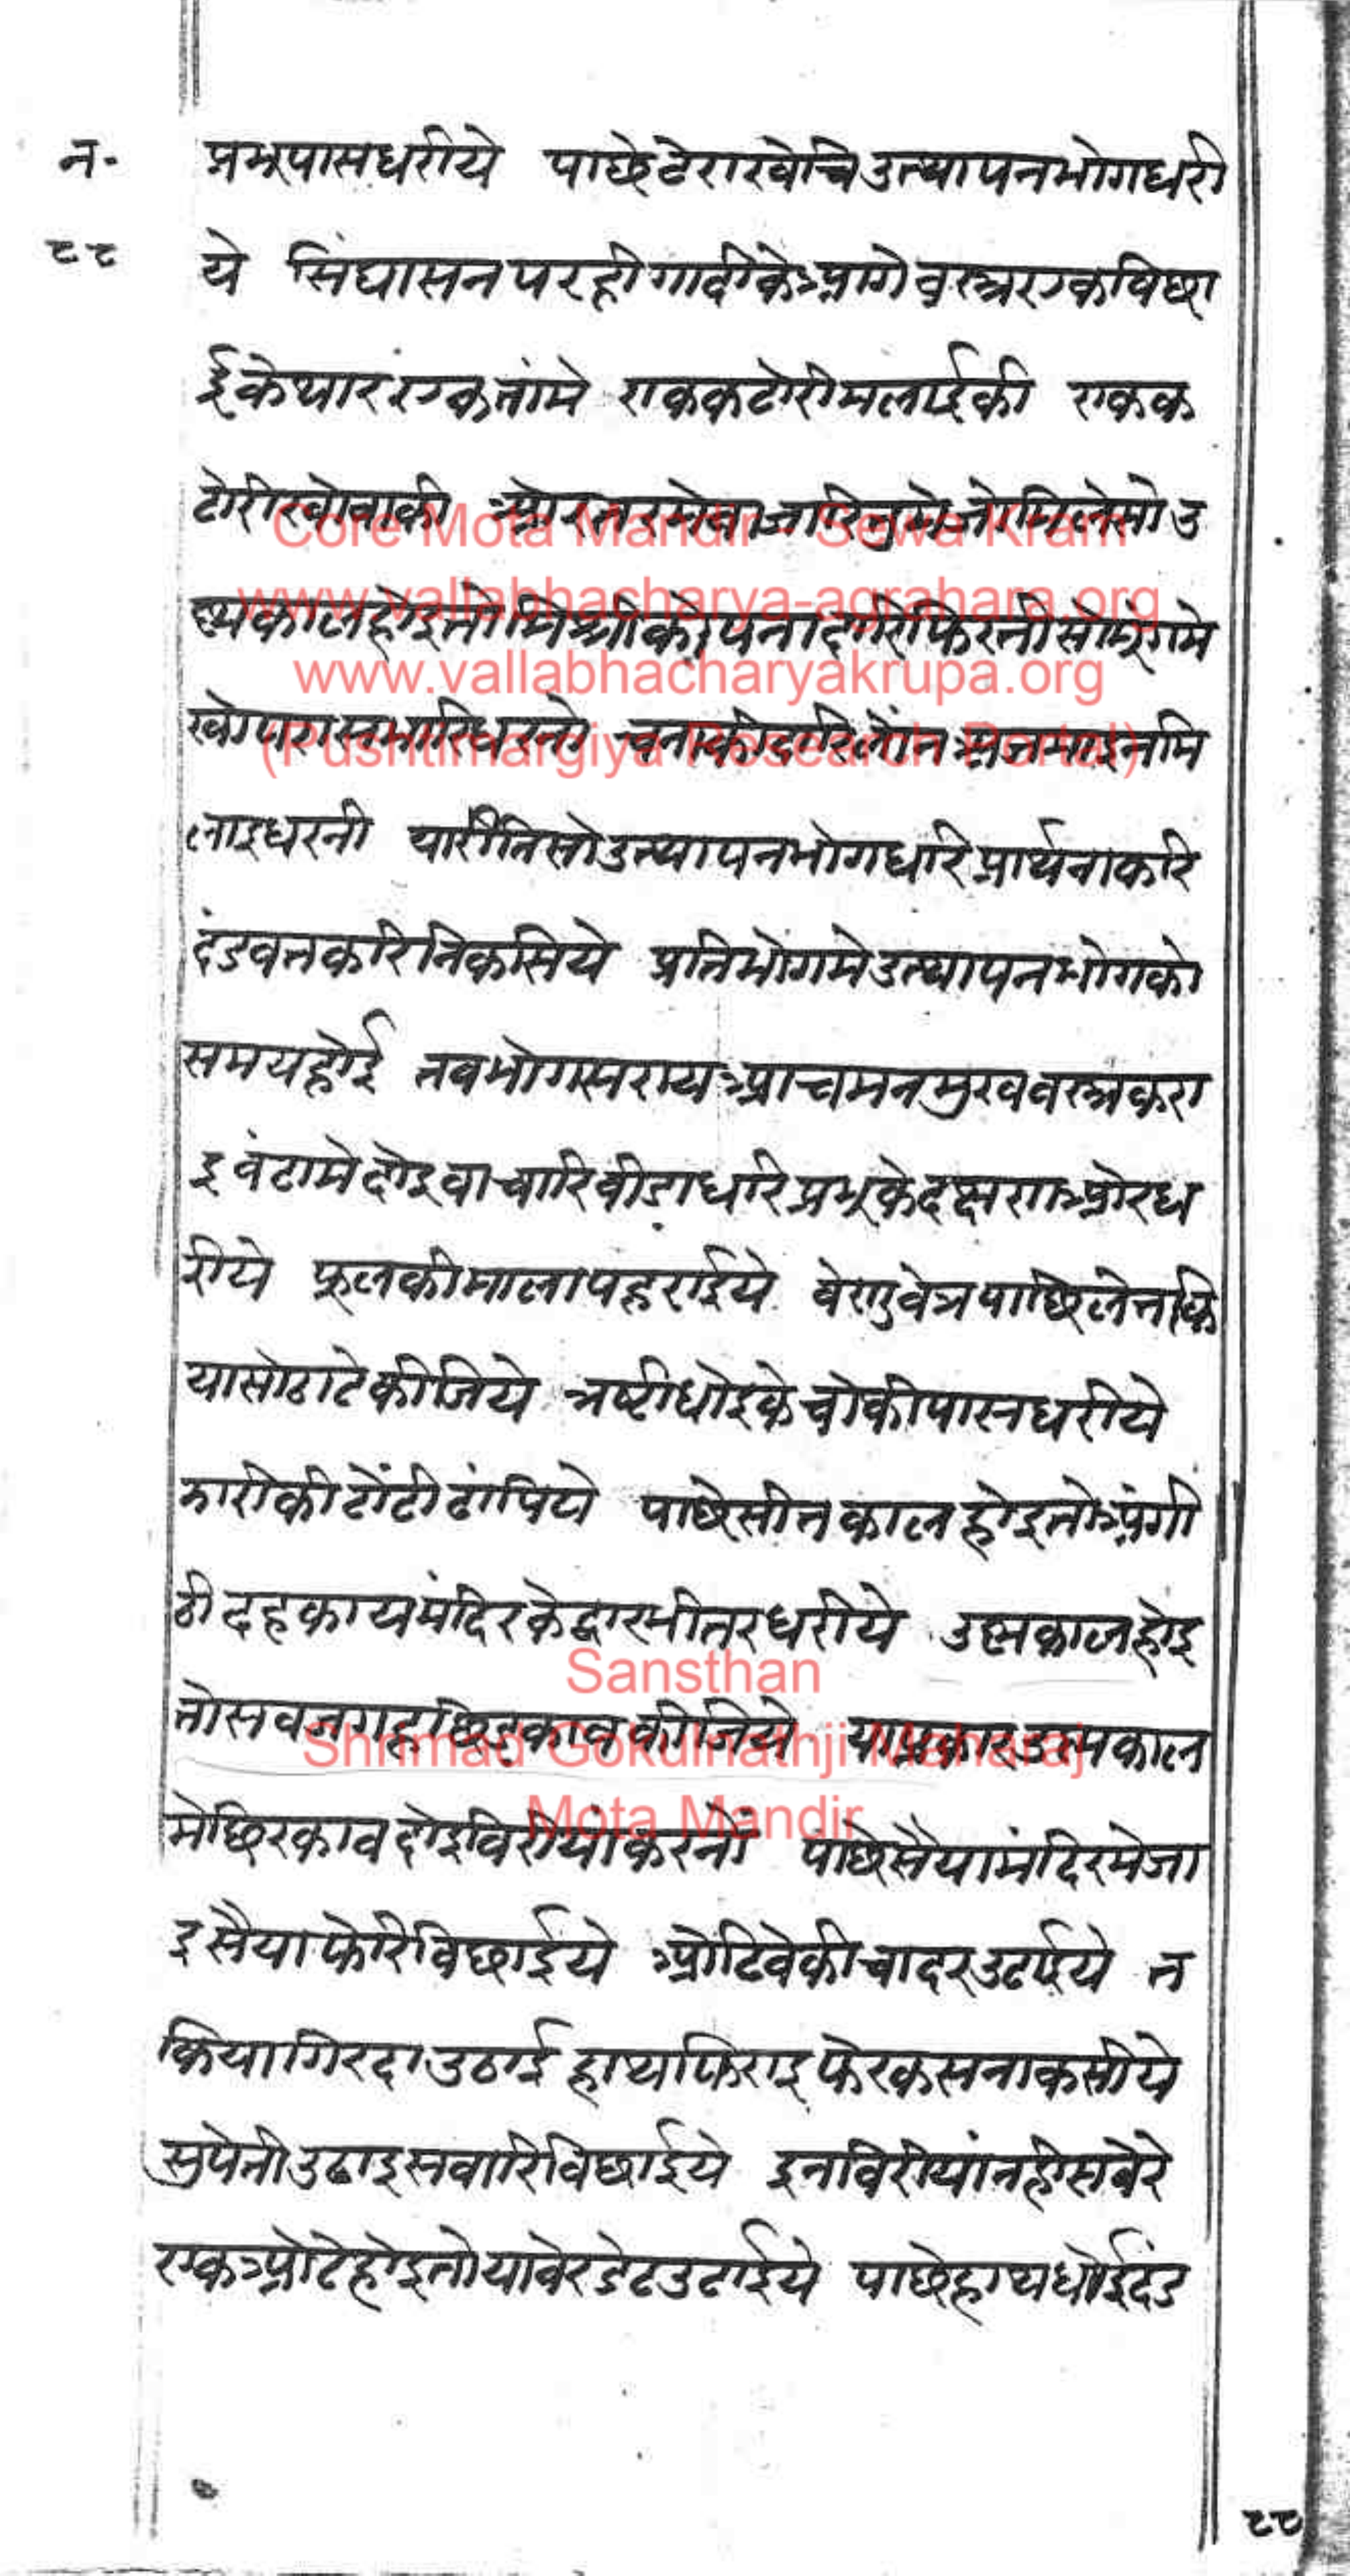 न॰
८८
प्रभूपासधरीये पाछेटेराखेचिउत्थापनभोगधरी
ये सिंघासनपरहीगादीकेआगेवस्त्रएकबिछा
ईकेथारएकतांमे एककटोरीमलाईकी एकक
टोरीखोवाकी
लाइधरनी यारीतिसोउत्थापनभोगधरिप्रार्थनाकरि
दंडवतकरिनिकसिये प्रतिभोगमेउत्थापनभोगको
समयहोई तबभोगसरायआचमनमुखवस्त्रकरा
इ बंटामेदोइवाचारिबीडाधरिप्रभूकेदक्षणओरध
रीये फूलकीमालापहराईये वेणुवेत्रपाछिलेतकि
यासोठाटेकीजिये त्रष्टीधोइकेचोकीपासधरीये
झारीकीटोंटीढांपिये पाछेसीतकालहोइतोअंगी
ठीदहकायमंदिरकेद्वारभीतरधरीये उष्णकालहोइ
तोसबजगहछिरकावकीजिये याप्रकारउष्णकाल
मेछिरकावदोइबिरीयांकरनों पाछेसैयामंदिरमेजा
इसैयाफेरिबिछाईये ओढिवेकीचादरउढाईये त
कियागिरदाउठाई हाथफिराइफेरकसनाकसीये
सुपेतीउढाइसवारिबिछाईये इनबिरीयांनहीसवेरे
एकओटेहोइतोयाबेरडेटउटाईये पाछेहाथधोईदंड
८८
Core Mota Mandir - Sewa Kram
www.vallabhacharya-agrahara.org
www.vallabhacharyakrupa.org
(Pushtimargiya Research Portal)
Sansthan
Shrimad Gokulnathji Maharaj
Mota Mandir